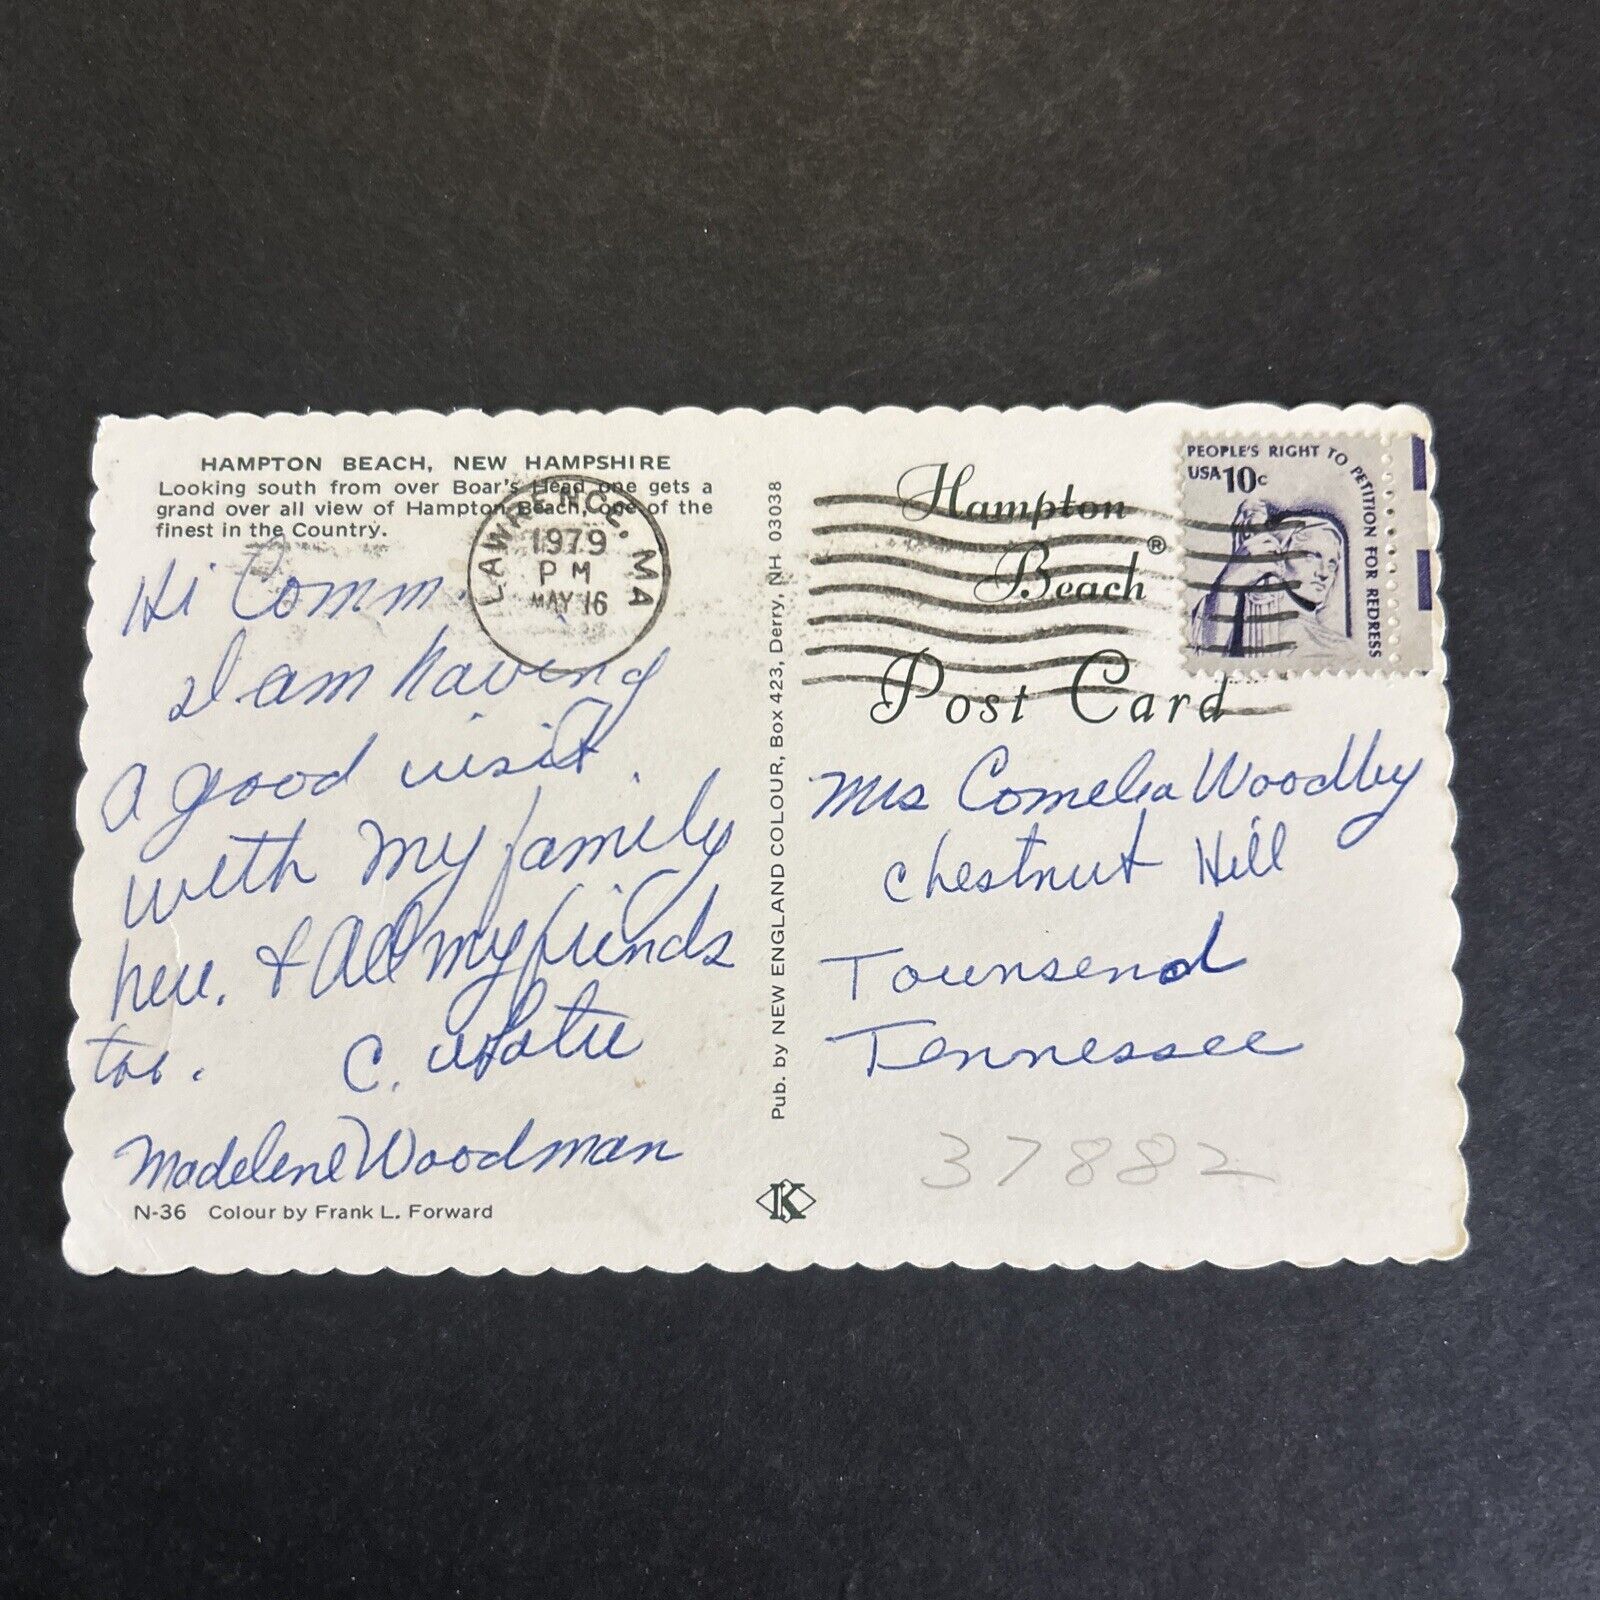 HAMPTON BEACH, NEW HAMPSHIRE
Looking south from over Boar's Head one gets a
grand over all view of Hampton Beach, one of the
finest in the Country.
LAWRENCE, MA
1979
PM
MAY 16
Hi
I am having
a good visit
with my family
here. & All my friends
too. C.
Madelene Woodman
N-36 Colour by Frank L. Forward
Pub. by NEW ENGLAND COLOUR, Box 423, Derry, NH 03038
K
Hampton
Beach®
Post Card
PEOPLE'S RIGHT TO PETITION FOR REDRESS
USA 10c
Mrs Cornelia Woodby
Chestnut Hill
Townsend
Tennessee
37882